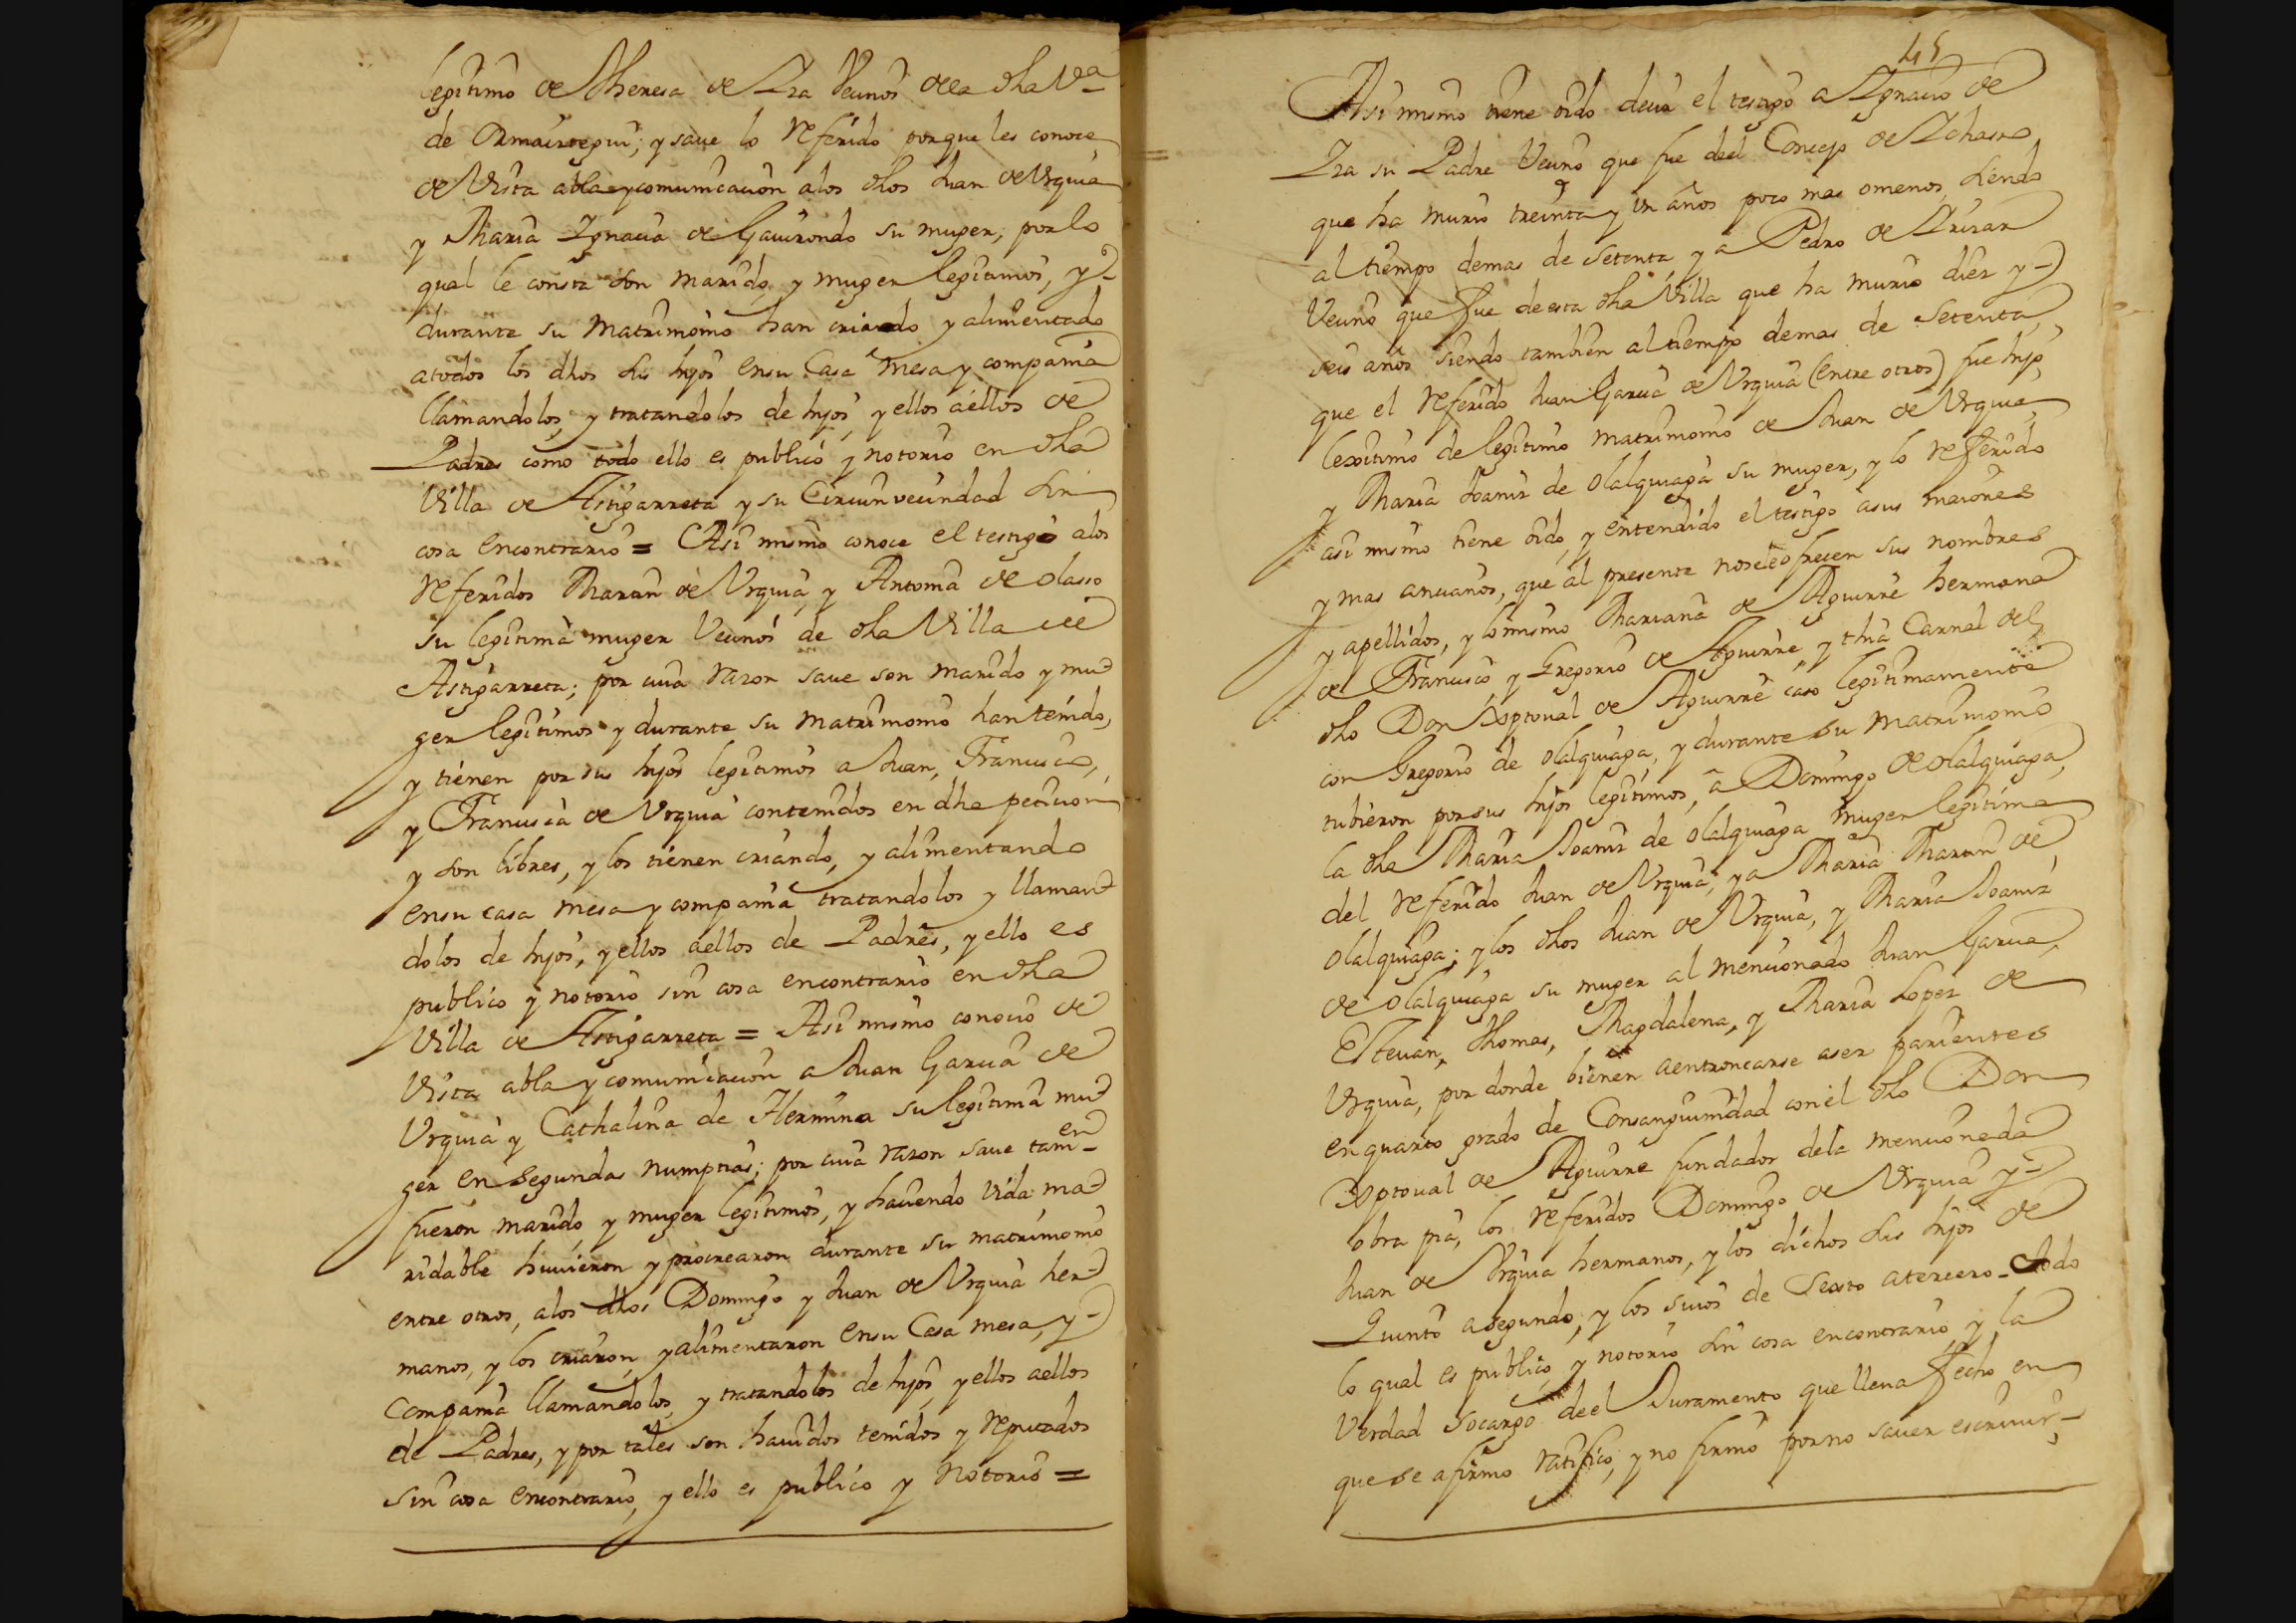 legitimo de Theresa de Iza Vecinos de la dha Vª
de Ormaiztegui; y saue lo referido porque les conoce
de Vista abla y comunicacion a los dhos Juan de Vrquia
y Maria Ignacia de Gauirondo su muger, por lo
qual le consta son marido, y muger legitimos, y
durante su Matrimonio han criando y alimentado
a todos los dhos sus hijos en su Casa mesa y compania
llamandolos, y tratandolos de hijos, y ellos aellos de
Padres como todo ello es publico y notorio en dha
Villa de Astigarreta y su Circunvecindad sin
cosa encontrario = Asi mismo conoce el testigo alos
referidos Martin de Vrquia, y Antonia de olasso
su legitima muger Vecinos de dha Villa de
Astigarreta; por cuia razon saue son marido y mu
ger legitimos y durante su matrimonio han tenido,
y tienen por sus hijos legitimos a Juan, Francisco,
y Francisca de Vrquia contenidos en dha peticion
y son libres, y los tienen criando, y alimentando
en su casa mesa y compania tratandolos y llaman
dolos de hijos, y ellos aellos de Padres, y ello es
publico y notorio sin cosa encontrario en dha
Villa de Astigarreta = Asi mismo conocio de
Vista abla y comunicacion a Juan Garcia de
Vrquia y Cathalina de Hermina su legitima mu
ger en segundas numptias; por cuia razon saue tam-en
fueron marido, y muger legitimos, y haciendo vida ma
ridable huuieron y procrearon durante su matrimonio
entre otros, alos dhos Domingo y Juan de Vrquia her
manos, y los criaron, y alimentaron en su Casa mesa, y
compania llamandolos, y tratandolos de hijos, y ellos aellos
de Padres, y por tales son hauidos tenidos y reputados
sin cosa encontrario, y ello es publico y notorio =
45
Asi mismo tiene oido decir el testigo a Ignacio de
Iza su Padre Vecino que fue deel Concejo de Ichaso
que ha murio treinta y un años poco mas omenos, siendo
al tiempo demas de setenta y a Pedro de Irizar
Vecino que fue de esta dha Villa que ha murio diez y
seis años siendo tambien al tiempo demas de setenta,
que el referido Juan Garcia de Vrquia (entre otros) fue hijo
lexitimo de legitimo matrimonio de Juan de Vrquia,
y Maria Joaniz de olalquiaga su muger, y lo referido
asi mismo tiene oido, y entendido el testigo asus maiores
y mas ancianos, que al presente noseleofrecen sus nombres
y apellidos, y lo mismo Mariana de Aguirre hermana
de Francisco y Gregorio de Aguirre, y thia Carnal del
dho Don Xptoual de Aguirre caso legitimamente
con Gregorio de olalquiaga, y durante su matrimonio
tubieron por sus hijos legitimos, a Domingo de olalquiaga,
la dha Maria Joaniz de olalquiaga muger legitima
del referido Juan de Vrquia, y a Maria Martin de
olalquiaga; y los dhos Juan de Vrquia, y Maria Joaniz
de olalquiaga su muger al mencionado Juan Garcia,
Esteuan, Thomas, Magdalena, y Maria Lopez de
Vrquia, por donde bienen aentroncarse aser parientes
en quarto grado de Consanguinidad con el dho Don
Xptoual de Aguirre fundador dela mencionada
obra pia, los referidos Domingo de Vrquia y
Juan de Vrquia hermanos, y los dichos sus hijos de
Quinto asegundo, y los suios de Sexto atercero. Todo
lo qual es publico, y notorio sin cosa encontrario, y la
Verdad socargo deel Juramento que lleua fecho en
que se afirmo ratifico, y no firmo porno sauer escriuir